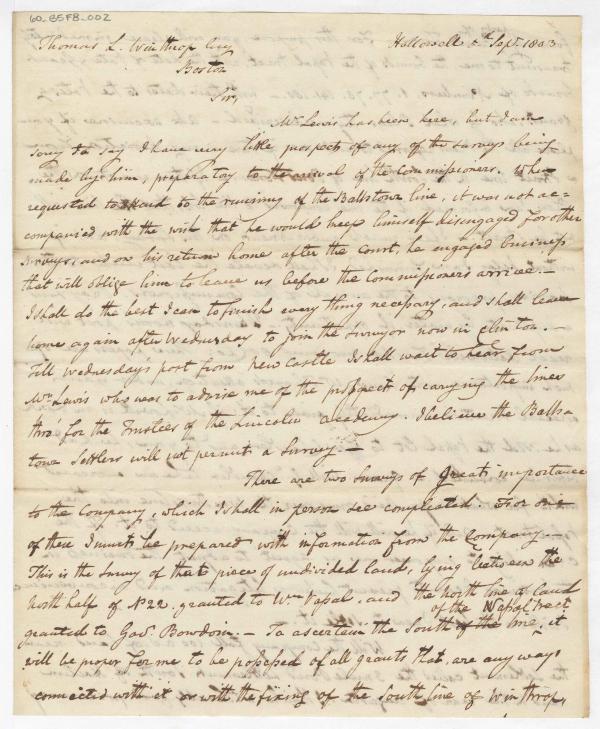 60-85FB-002
Thomas L. Winthrop Esq Hallowell 5th Sept. 1803
Boston
Sir,
Mr. Lewis has been here, but I am
sorry to say I have very little prospect of any of the surveys being
made by him, preparatory to the arrival of the Commissioners. When
requested to attend to the running of the Ballstown line, it was not ac-
companied with the wish that he would keep himself disengaged for other
surveys, and on his return home after the court, he engaged business
that will oblige him to leave us before the Commissioners arrive.—
I shall do the best I can to finish every thing necessary, and shall leave
home again after Wednesday to join the surveyor now in Clinton.—
Till Wednesday's post from New Castle I shall wait to hear from
Mr. Lewis who was to advise me of the prospect of carrying the lines
thro' for the Trustees of the Lincoln Academy. I believe the Balls-
town Settlers will not permit a Survey.—
There are two Surveys of great importance
to the Company, which I shall in person see compleated. For one
of these I must be prepared with information from the Company.—
This is the Survey of that piece of undivided land, lying between the
North half of N 22. granted to Wm Vassal, and the North line of land
granted to Gov. Bowdoin.— To ascertain the South line of the Vassal tract, it
will be proper for me to be possessed of all grants that are any ways
connected with it or with the fixing of the South line of Winthrop,